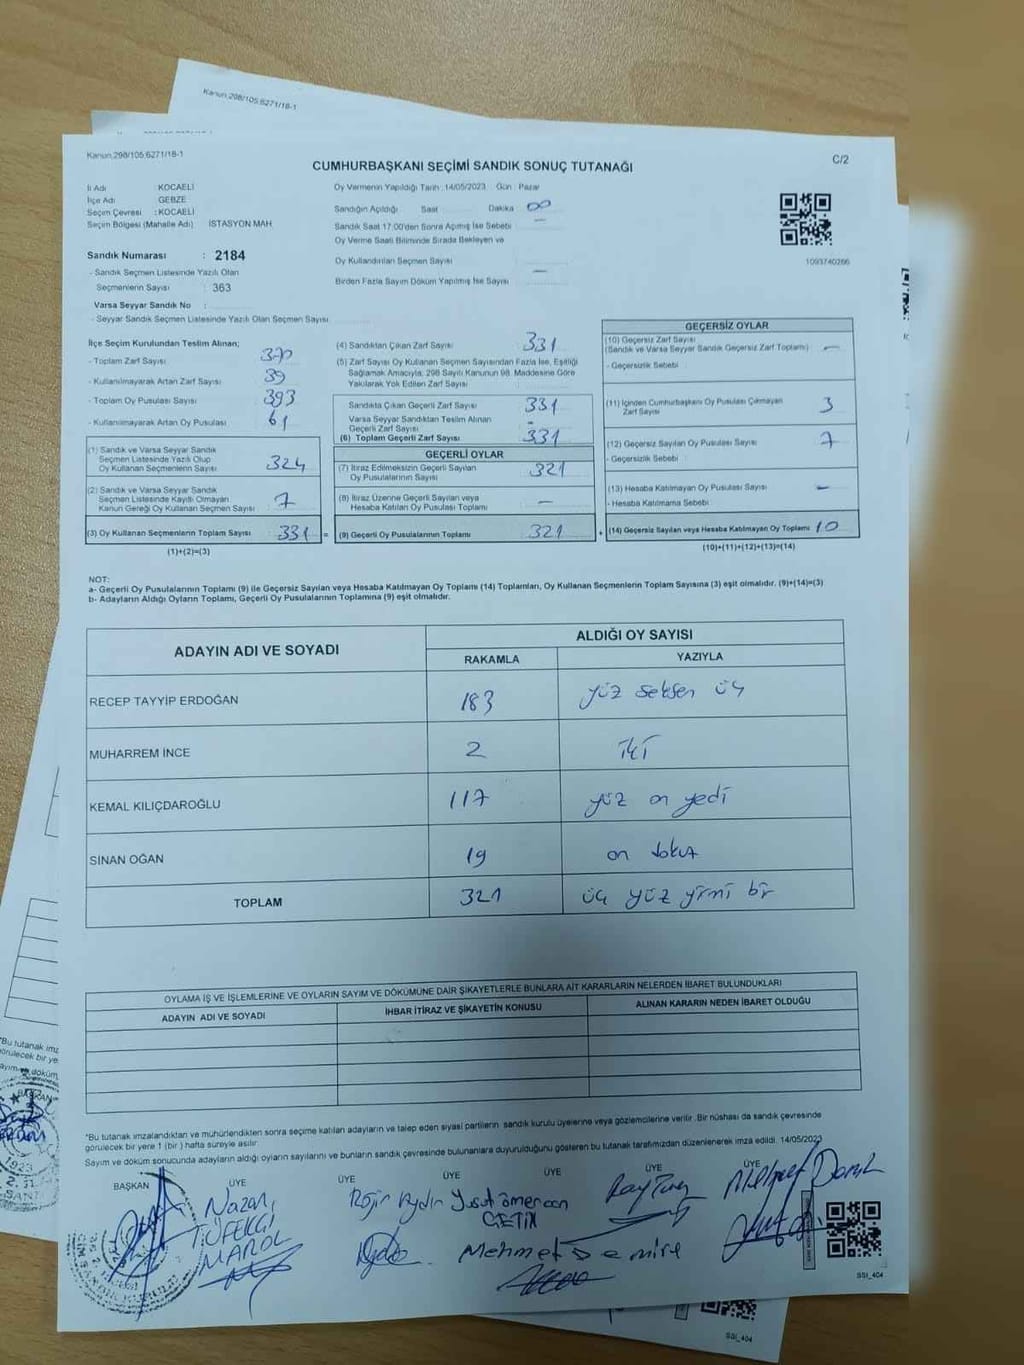 Kanun:298/105;6271/18-1
Kanun:298/105;6271/18-1
C/2
CUMHURBAŞKANI SEÇİMİ SANDIK SONUÇ TUTANAĞI
İl Adı KOCAELİ
İlçe Adı GEBZE
Seçim Çevresi : KOCAELİ
Seçim Bölgesi (Mahalle Adı) İSTASYON MAH
Sandık Numarası : 2184
- Sandık Seçmen Listesinde Yazılı Olan
Seçmenlerin Sayısı : 363
Varsa Seyyar Sandık No :
- Seyyar Sandık Seçmen Listesinde Yazılı Olan Seçmen Sayısı
Oy Vermenin Yapıldığı Tarih : 14/05/2023 Gün : Pazar
Sandığın Açıldığı Saat Dakika
Sandık Saat 17:00'den Sonra Açılmış İse Sebebi —
Oy Verme Saati Bitiminde Sırada Bekleyen ve
Oy Kullandırılan Seçmen Sayısı
Birden Fazla Sayım Döküm Yapılmış İse Sayısı —
1093740266
İlçe Seçim Kurulundan Teslim Alınan;
- Toplam Zarf Sayısı 370
- Kullanılmayarak Artan Zarf Sayısı 39
- Toplam Oy Pusulası Sayısı 393
- Kullanılmayarak Artan Oy Pusulası 61
(1) Sandık ve Varsa Seyyar Sandık
Seçmen Listesinde Yazılı Olup
Oy Kullanan Seçmenlerin Sayısı 324
(2) Sandık ve Varsa Seyyar Sandık
Seçmen Listesinde Kayıtlı Olmayan
Kanun Gereği Oy Kullanan Seçmen Sayısı 7
(3) Oy Kullanan Seçmenlerin Toplam Sayısı 331 =
(1)+(2)=(3)
(4) Sandıktan Çıkan Zarf Sayısı 331
(5) Zarf Sayısı Oy Kullanan Seçmen Sayısından Fazla İse, Eşitliği
Sağlamak Amacıyla, 298 Sayılı Kanunun 98. Maddesine Göre
Yakılarak Yok Edilen Zarf Sayısı
Sandıkta Çıkan Geçerli Zarf Sayısı 331
Varsa Seyyar Sandıktan Teslim Alınan
Geçerli Zarf Sayısı -
(6) Toplam Geçerli Zarf Sayısı 331
GEÇERLİ OYLAR
(7) İtiraz Edilmeksizin Geçerli Sayılan
Oy Pusulalarının Sayısı 321
(8) İtiraz Üzerine Geçerli Sayılan veya
Hesaba Katılan Oy Pusulası Toplamı —
(9) Geçerli Oy Pusulalarının Toplamı 321 +
GEÇERSİZ OYLAR
(10) Geçersiz Zarf Sayısı
(Sandık ve Varsa Seyyar Sandık Geçersiz Zarf Toplamı) —
- Geçersizlik Sebebi
(11) İçinden Cumhurbaşkanı Oy Pusulası Çıkmayan
Zarf Sayısı 3
(12) Geçersiz Sayılan Oy Pusulası Sayısı 7
- Geçersizlik Sebebi
(13) Hesaba Katılmayan Oy Pusulası Sayısı —
- Hesaba Katılmama Sebebi
(14) Geçersiz Sayılan veya Hesaba Katılmayan Oy Toplamı 10
(10)+(11)+(12)+(13)=(14)
NOT:
a- Geçerli Oy Pusulalarının Toplamı (9) ile Geçersiz Sayılan veya Hesaba Katılmayan Oy Toplamı (14) Toplamları, Oy Kullanan Seçmenlerin Toplam Sayısına (3) eşit olmalıdır. (9)+(14)=(3)
b- Adayların Aldığı Oyların Toplamı, Geçerli Oy Pusulalarının Toplamına (9) eşit olmalıdır.
ADAYIN ADI VE SOYADI
ALDIĞI OY SAYISI
RAKAMLA YAZIYLA
RECEP TAYYİP ERDOĞAN 183 yüz seksen üç
MUHARREM İNCE 2 iki
KEMAL KILIÇDAROĞLU 117 yüz on yedi
SİNAN OĞAN 19 on dokuz
TOPLAM 321 üç yüz yirmi bir
OYLAMA İŞ VE İŞLEMLERİNE VE OYLARIN SAYIM VE DÖKÜMÜNE DAİR ŞİKAYETLERLE BUNLARA AİT KARARLARIN NELERDEN İBARET BULUNDUKLARI
ADAYIN ADI VE SOYADI İHBAR İTİRAZ VE ŞİKAYETİN KONUSU ALINAN KARARIN NEDEN İBARET OLDUĞU
*Bu tutanak imzalandıktan ve mühürlendikten sonra seçime katılan adayların ve talep eden siyasi partilerin sandık kurulu üyelerine veya gözlemcilerine verilir. Bir nüshası da sandık çevresinde
görülecek bir yere 1 (bir) hafta süreyle asılır.
Sayım ve döküm sonucunda adayların aldığı oyların sayılarını ve bunların sandık çevresinde bulunanlara duyurulduğunu gösteren bu tutanak tarafımızdan düzenlenerek imza edildi. 14/05/2023
BAŞKAN ÜYE ÜYE ÜYE ÜYE ÜYE ÜYE
Nazan
TÜFEKÇİ
MAROL
Rojin Aydın
ÇETİN
Mehmet Demirel
SSİ_404
SSİ_404
*Bu tutanak imz
görülecek bir ye
BAŞKAN
1923